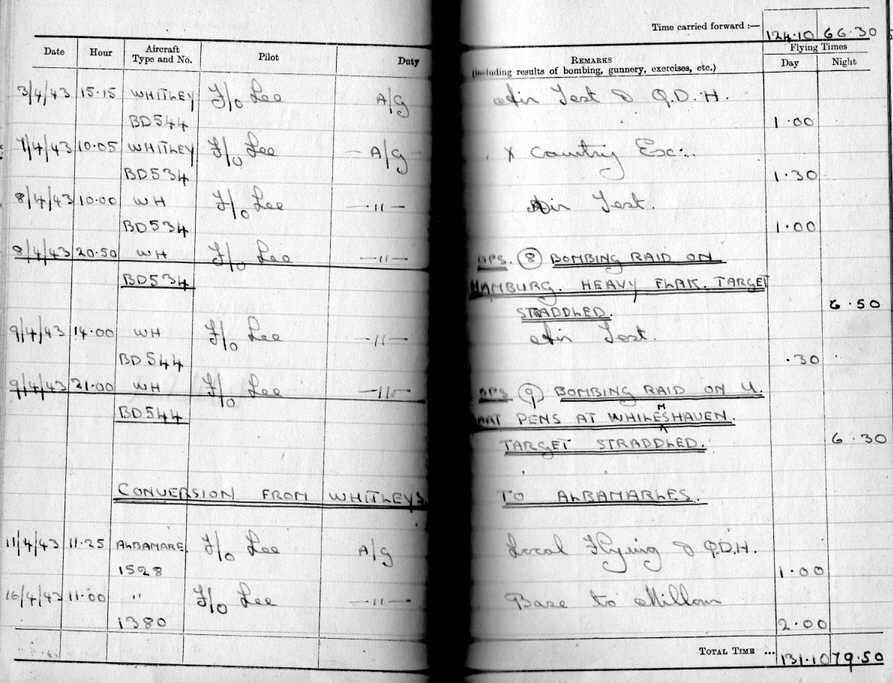 Time carried forward :— 124.10 66.30
Date Hour Aircraft Type and No. Pilot Duty REMARKS (including results of bombing, gunnery, exercises, etc.) Flying Times Day Night
3/4/43 15.15 WHITLEY F/o Lee A/G Air Test & Q.D.H.
BD544 1.00
7/4/43 10.05 WHITLEY F/o Lee — A/G X Country Exc:.
BD534 1.30
8/4/43 10.00 WH F/o Lee —"— Air Test.
BD534 1.00
8/4/43 20.50 WH F/o Lee —"— OPS. (8) BOMBING RAID ON
BD534 HAMBURG. HEAVY FLAK. TARGET
STRADDLED. 6.50
9/4/43 14.00 WH F/o Lee —"— Air Test.
BD544 .30
9/4/43 21.00 WH F/o Lee —"— OPS (9) BOMBING RAID ON U.
BD544 BOAT PENS AT WHILEMSHAVEN.
TARGET STRADDLED. 6.30
CONVERSION FROM WHITLEYS TO ALBAMARLES.
11/4/43 11.25 ALBAMARE. F/o Lee A/G Local Flying & Q.D.H.
1528 1.00
16/4/43 11.00 " F/o Lee —"— Base to Millom
1380 2.00
TOTAL TIME ... 131.10 79.50